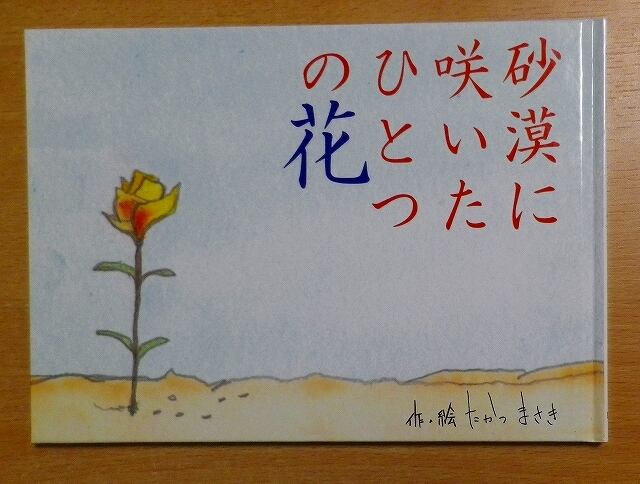 砂漠に
咲いた
ひとつ
の花
作・絵 たかつ まさき